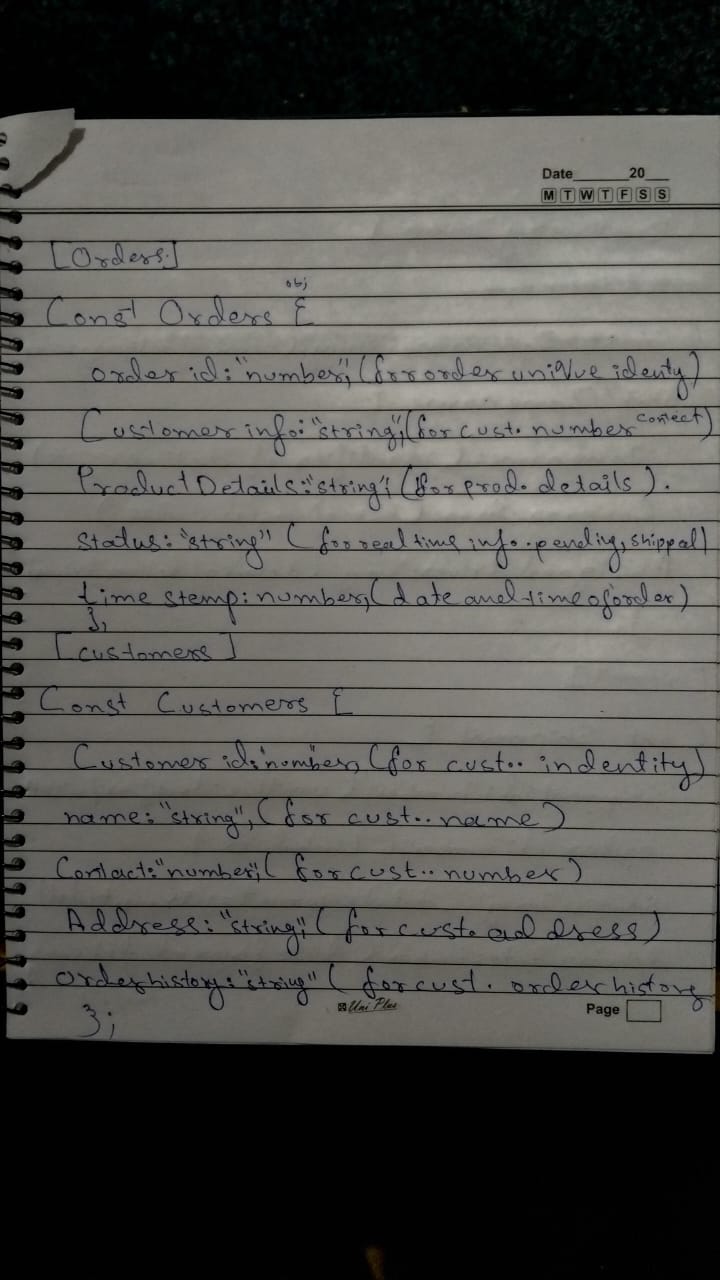 Date______20___
M T W T F S S
[Orders]
obj
Const Orders {
order id: "number", (for order unique identy)
Customer info: "string", (for cust. number contect)
Product Details: "string", (for prod. details).
Status: "string" (for real time info. pending, shippal)
time stemp: number, (date and time of order)
},
[customers]
Const Customers {
Customer id: "number", (for cust.. indentity)
name: "string", (for cust.. name)
Contact: "number", (for cust.. number)
Address: "string", (for cust. address)
order history: "string" (for cust. order history
};
Uni Plus
Page